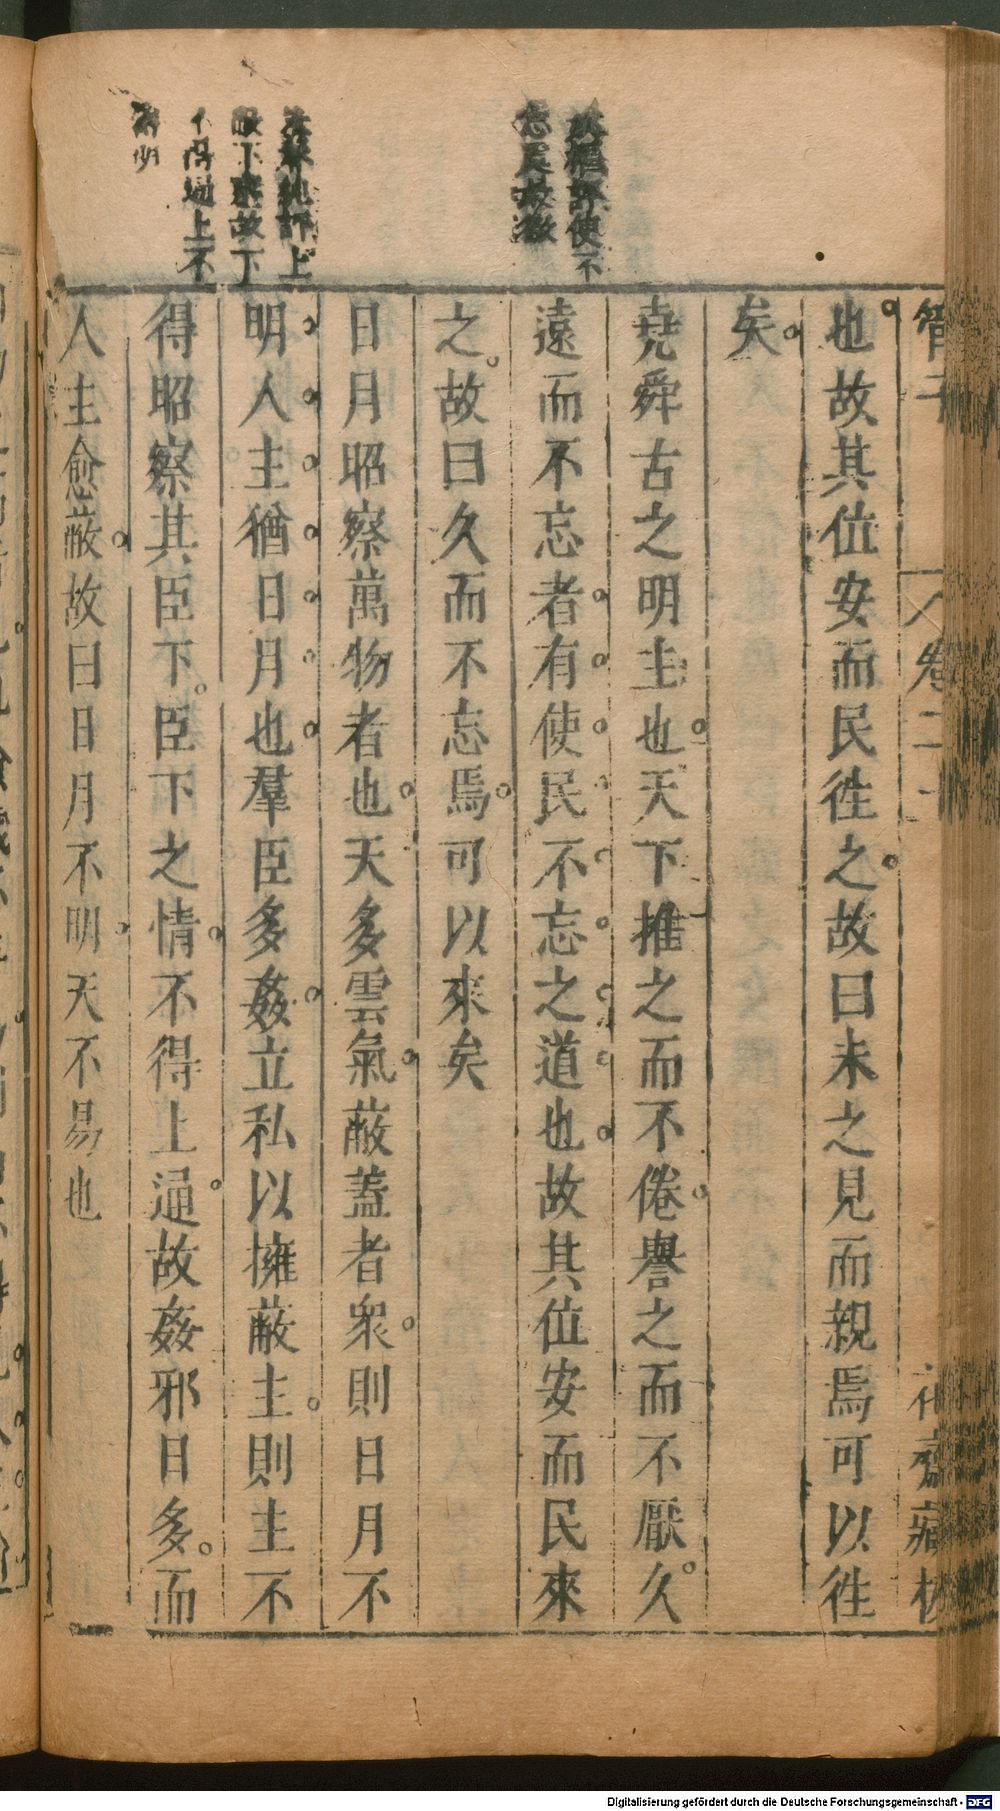 管子
卷二十
花齋藏板
也故其位安而民徃之故曰未之見而親焉可以徃
矣
堯舜古之明主也天下推之而不倦譽之而不厭久
遠而不忘者有使民不忘之道也故其位安而民來
之故曰久而不忘焉可以來矣
日月昭察萬物者也天多雲氣蔽蓋者衆則日月不
明人主猶日月也羣臣多姦立私以擁蔽主則主不
得昭察其臣下臣下之情不得上通故姦邪日多而
人主愈蔽故曰日月不明天不易也
評使不
上
下
上不
Digitalisierung gefördert durch die Deutsche Forschungsgemeinschaft - DFG